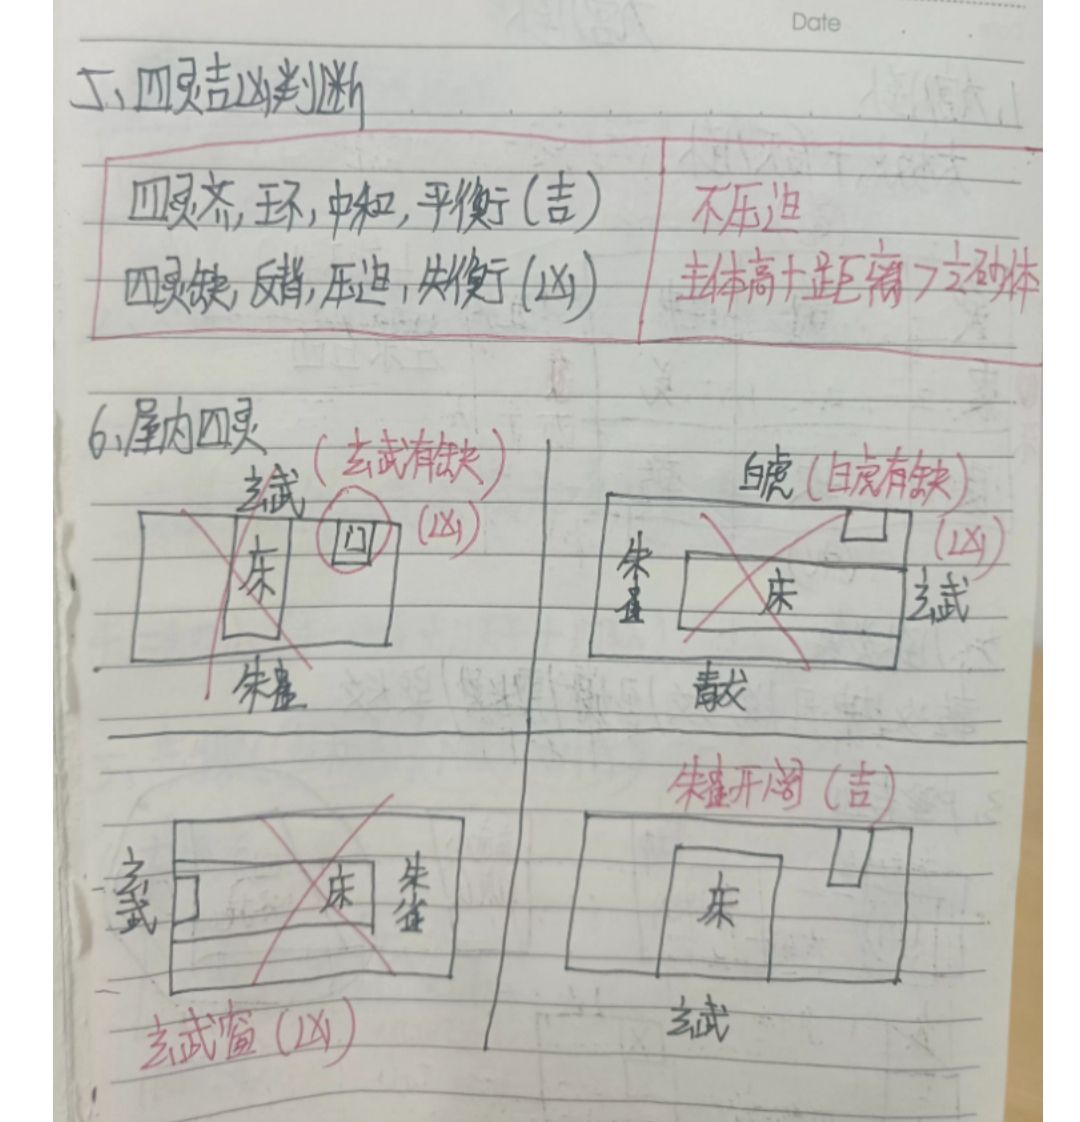 Date
5、四灵吉凶判断
四灵齐,王环,中和,平衡(吉)
四灵缺,反背,压迫,失衡(凶)
不压迫
主体高+距离>之砂体
6、屋内四灵
玄武
(玄武有缺)
(凶)
床
门
朱雀
白虎(白虎有缺)
(凶)
朱雀
床
玄武
青龙
玄武
床
朱雀
玄武窗(凶)
朱雀开阔(吉)
床
玄武